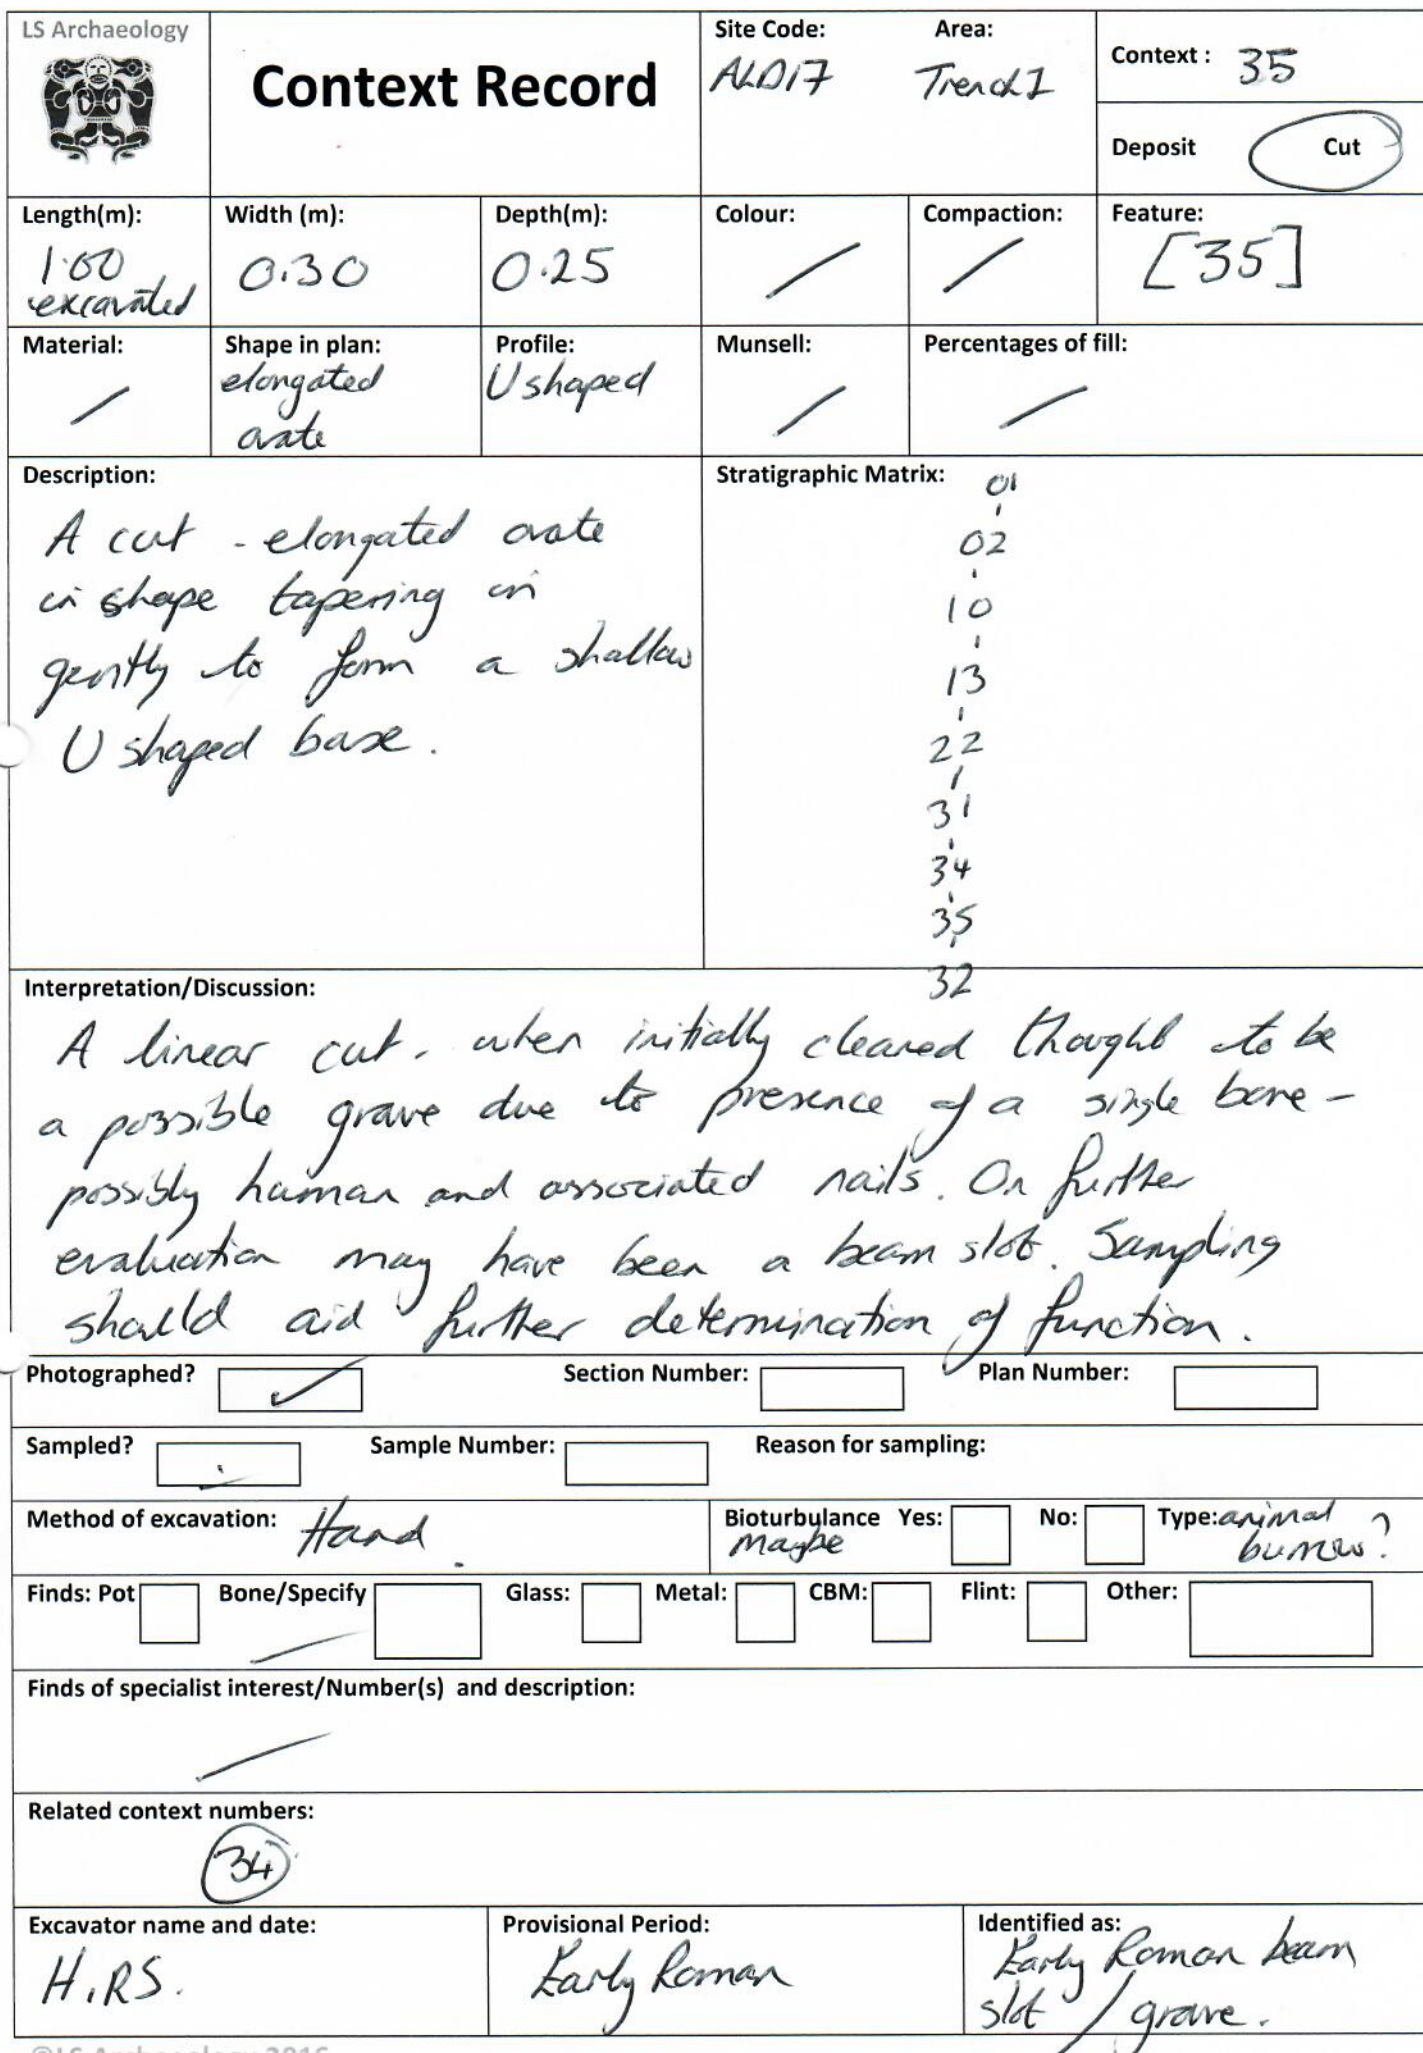 LS Archaeology
Context Record
Site Code:
ALD17
Area:
Trench 1
Context : 35
Deposit Cut
Length(m):
1.00
excavated
Width (m):
0.30
Depth(m):
0.25
Colour:
/
Compaction:
/
Feature:
[35]
Material:
/
Shape in plan:
elongated
ovate
Profile:
U shaped
Munsell:
/
Percentages of fill:
/
Description:
A cut - elongated ovate
in shape tapering in
gently to form a shallow
U shaped base.
Stratigraphic Matrix:
01
02
10
13
22
31
34
35
32
Interpretation/Discussion:
A linear cut, when initially cleaned thought to be
a possible grave due to presence of a single bone -
possibly human and associated nails. On further
evaluation may have been a beam slot. Sampling
should aid further determination of function.
Photographed? ✓ Section Number: Plan Number:
Sampled? Sample Number: Reason for sampling:
Method of excavation: Hand.
Bioturbulance Yes: No: Type: animal
maybe burrow?
Finds: Pot Bone/Specify Glass: Metal: CBM: Flint: Other:
/
Finds of specialist interest/Number(s) and description:
/
Related context numbers:
34
Excavator name and date:
H.RS.
Provisional Period:
Early Roman
Identified as:
Early Roman beam
slot / grave.